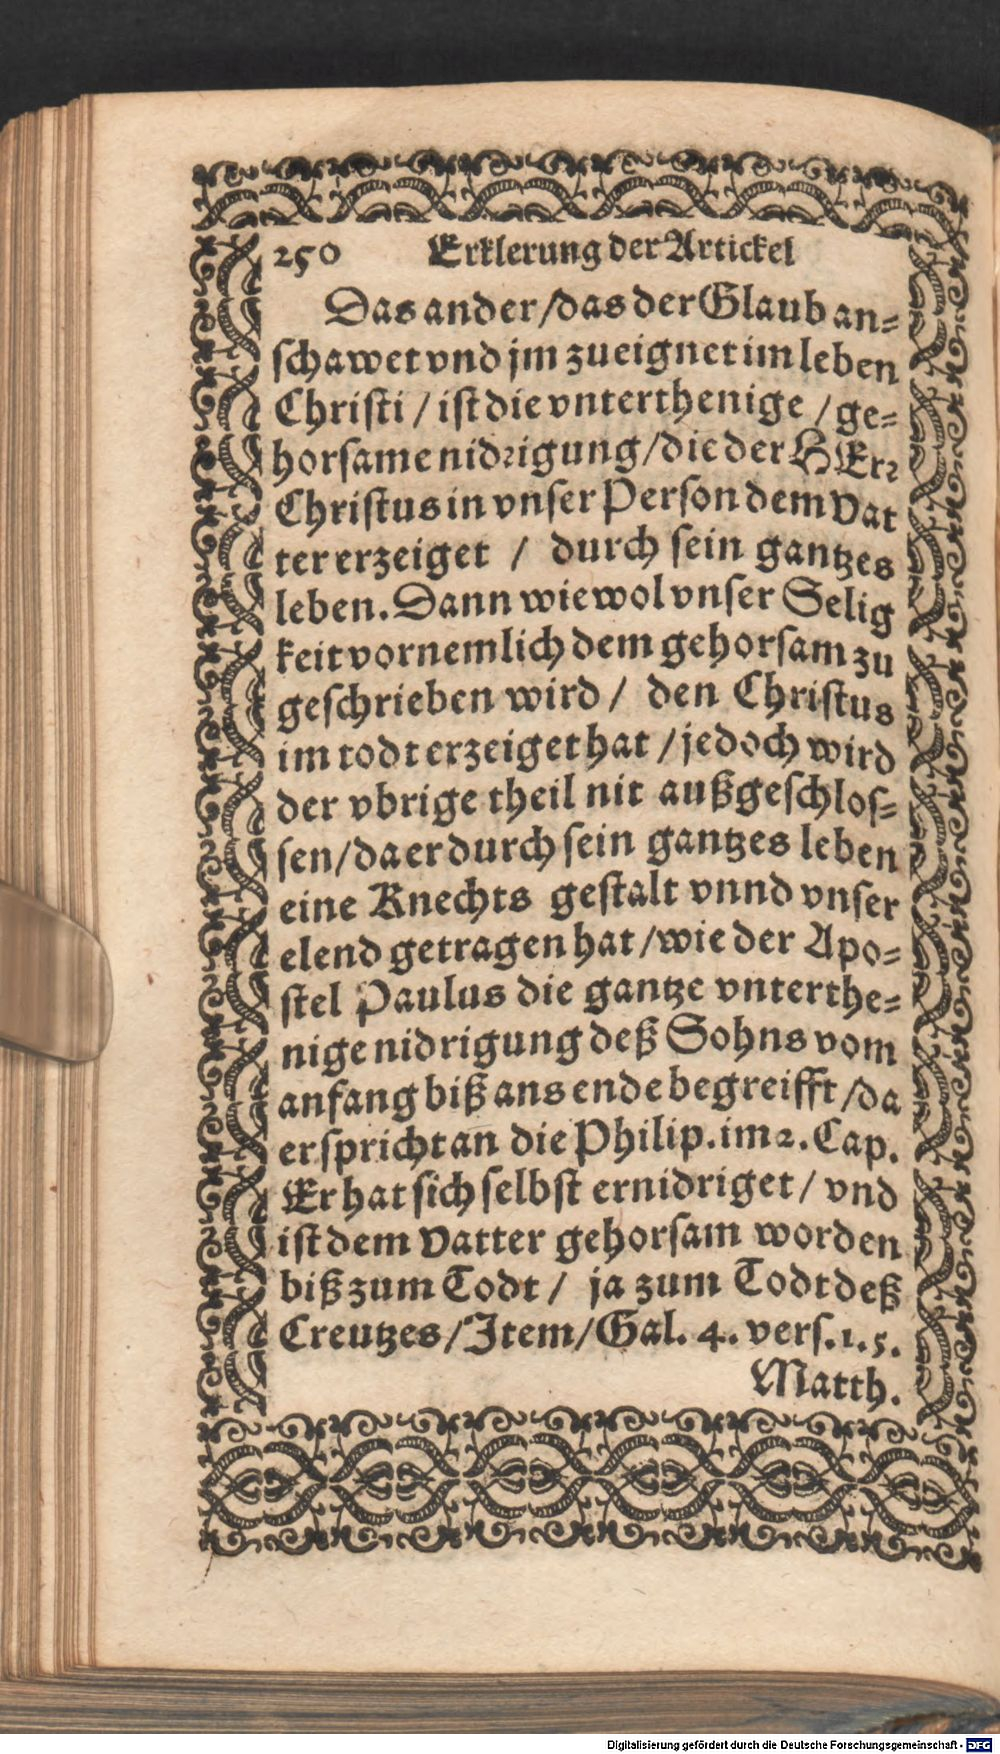 250 Erklerung der Artickel
Das ander/das der Glaub an-
schawet vnd jm zueignet im leben
Christi / ist die vnterthenige / ge-
horsame nidrigung/die der HErr
Christus in vnser Person dem Vat
ter erzeiget / durch sein gantzes
leben. Dann wiewol vnser Selig
keit vornemlich dem gehorsam zu
geschrieben wird / den Christus
im todt erzeiget hat / jedoch wird
der vbrige theil nit außgeschlos-
sen/da er durch sein gantzes leben
eine Knechts gestalt vnnd vnser
elend getragen hat /wie der Apo-
stel Paulus die gantze vnterthe-
nige nidrigung deß Sohns vom
anfang biß ans ende begreifft /da
er spricht an die Philip. im 2. Cap.
Er hat sich selbst ernidriget / vnd
ist dem Vatter gehorsam worden
biß zum Todt / ja zum Todt deß
Creutzes/Item/Gal. 4. vers. 1. 5.
Matth.
Digitalisierung gefördert durch die Deutsche Forschungsgemeinschaft - DFG